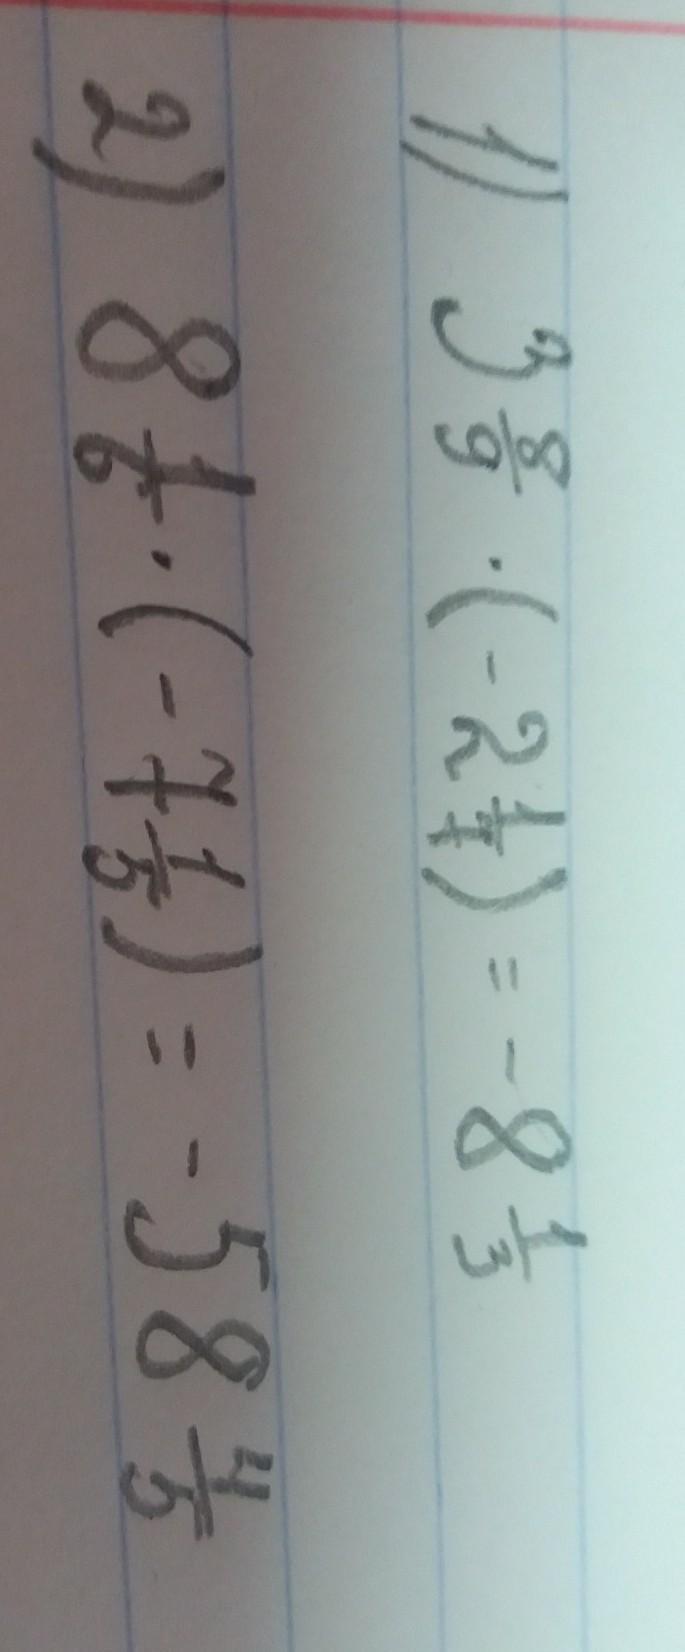 1) 3 8/9 · (-2 1/7) = -8 1/3
2) 8 1/6 · (-7 1/5) = -58 4/5